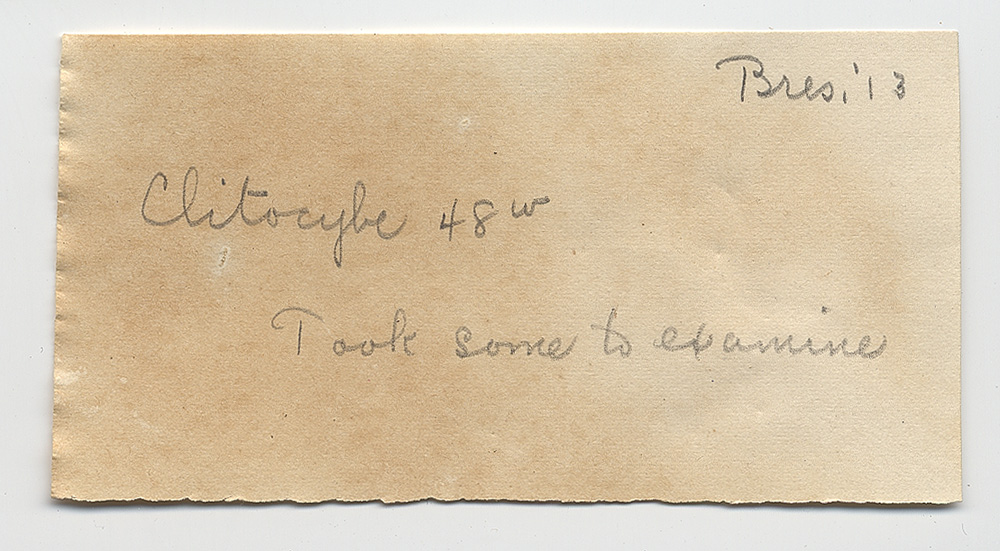 Bres. '13
Clitocybe 48 w
Took some to examine